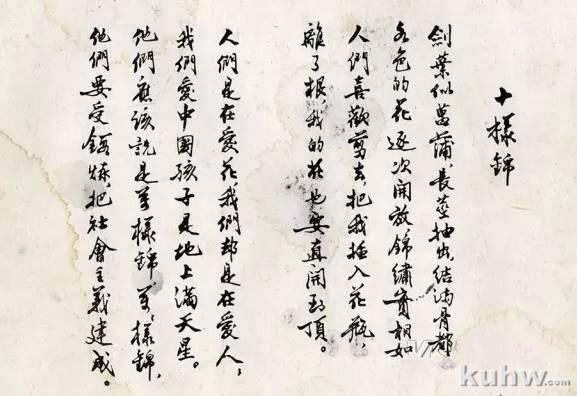 十樣錦
劍葉似菖蒲,長莖抽出,結滿骨都
各色的花逐次開放錦繡實相如
人們喜歡剪去,把我插入花瓶,
離了根,我的花也要直開到頂。
人們是在愛花,我們却是在愛人,
我們愛中國孩子是地上滿天星。
他們應該說是萬樣錦,萬樣錦,
他們要受鍛煉,把社會主義建成。
kuhw.com